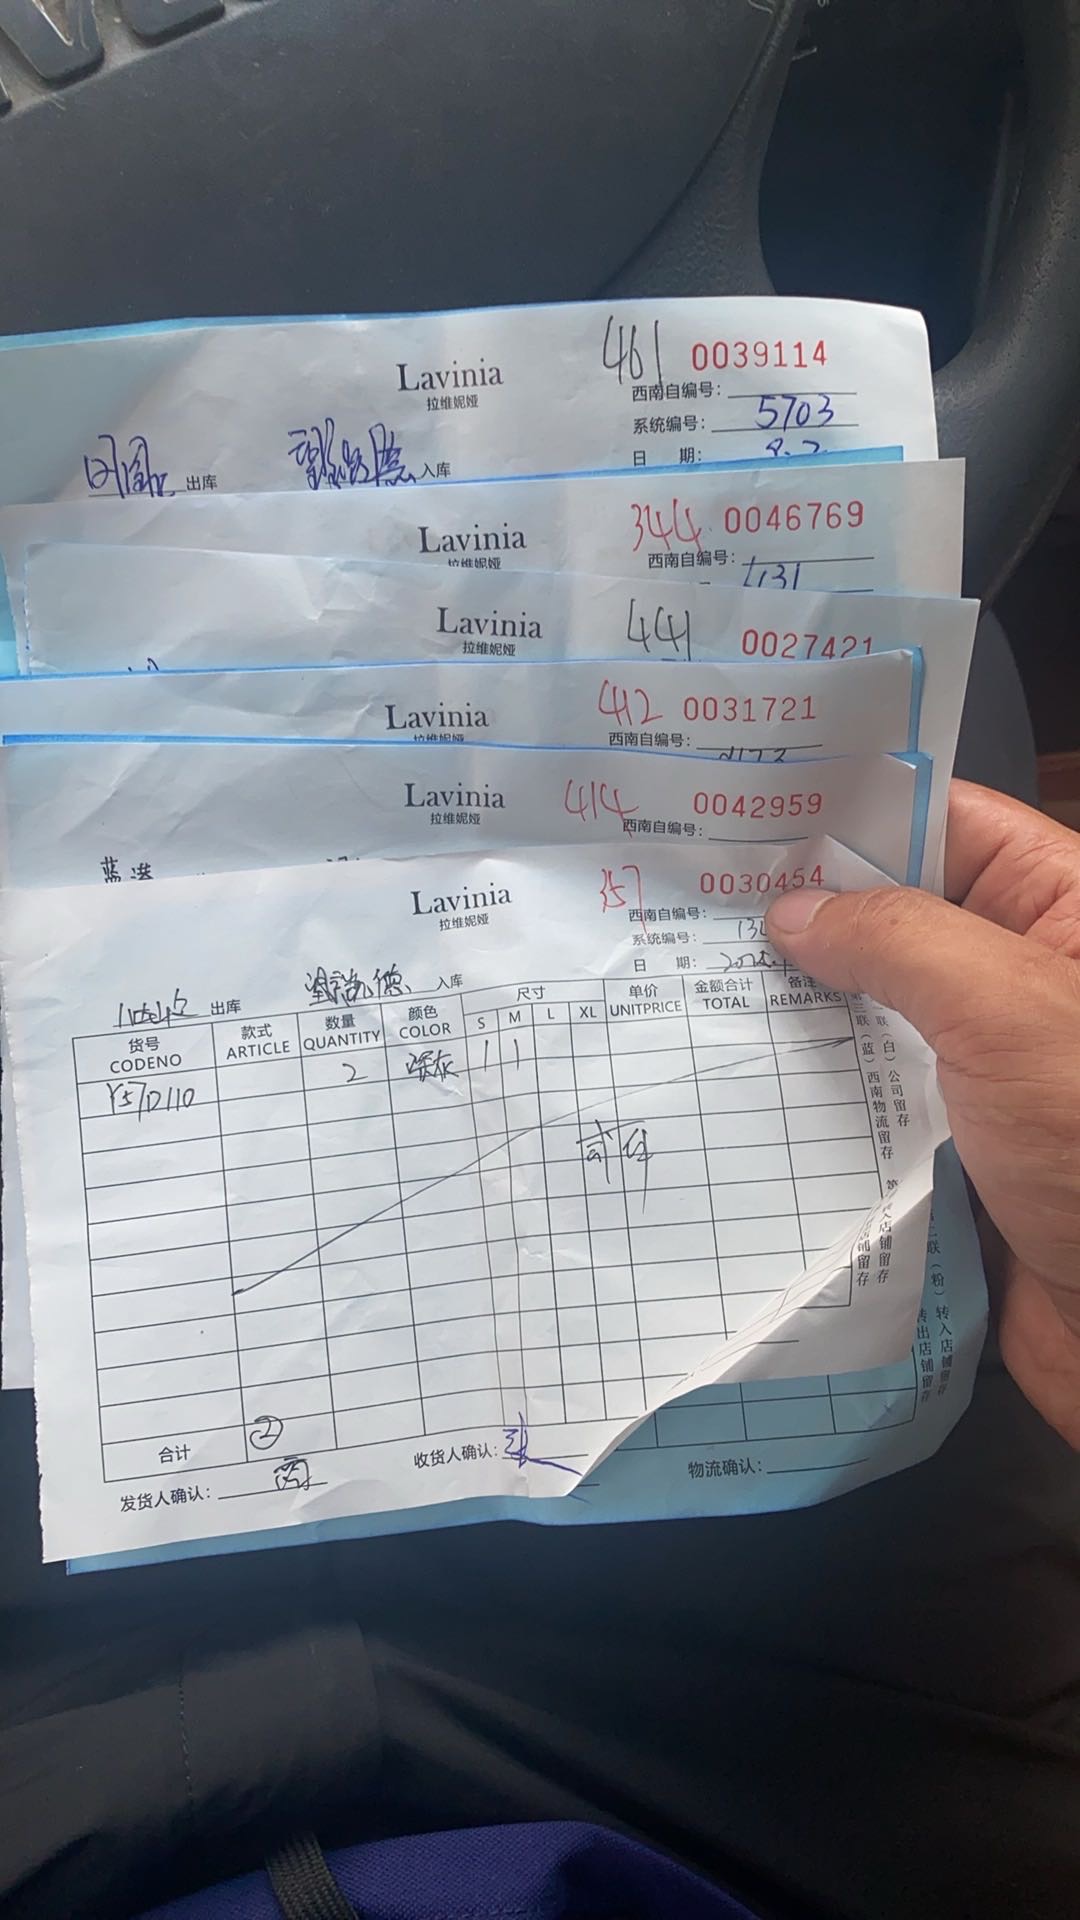 461 0039114
Lavinia
拉维妮娅
西南自编号:
系统编号: 5703
日 期: 8.2
出库 入库
344 0046769
Lavinia
拉维妮娅
西南自编号:
441 0027421
Lavinia
拉维妮娅
412 0031721
Lavinia
拉维妮娅
西南自编号:
414 0042959
Lavinia
拉维妮娅
西南自编号:
蓝港
357 0030454
Lavinia
拉维妮娅
西南自编号:
系统编号:
日 期:
出库 入库
货号 款式 数量 颜色 尺寸 单价 金额合计 备注
CODENO ARTICLE QUANTITY COLOR S M L XL UNITPRICE TOTAL REMARKS
Y57D110 2 深灰 1 1
贰件
合计 2
发货人确认: 收货人确认: 物流确认:
联(白)公司留存
第三联(蓝)西南物流留存
转入店铺留存
二联(粉)转入店铺留存
转出店铺留存